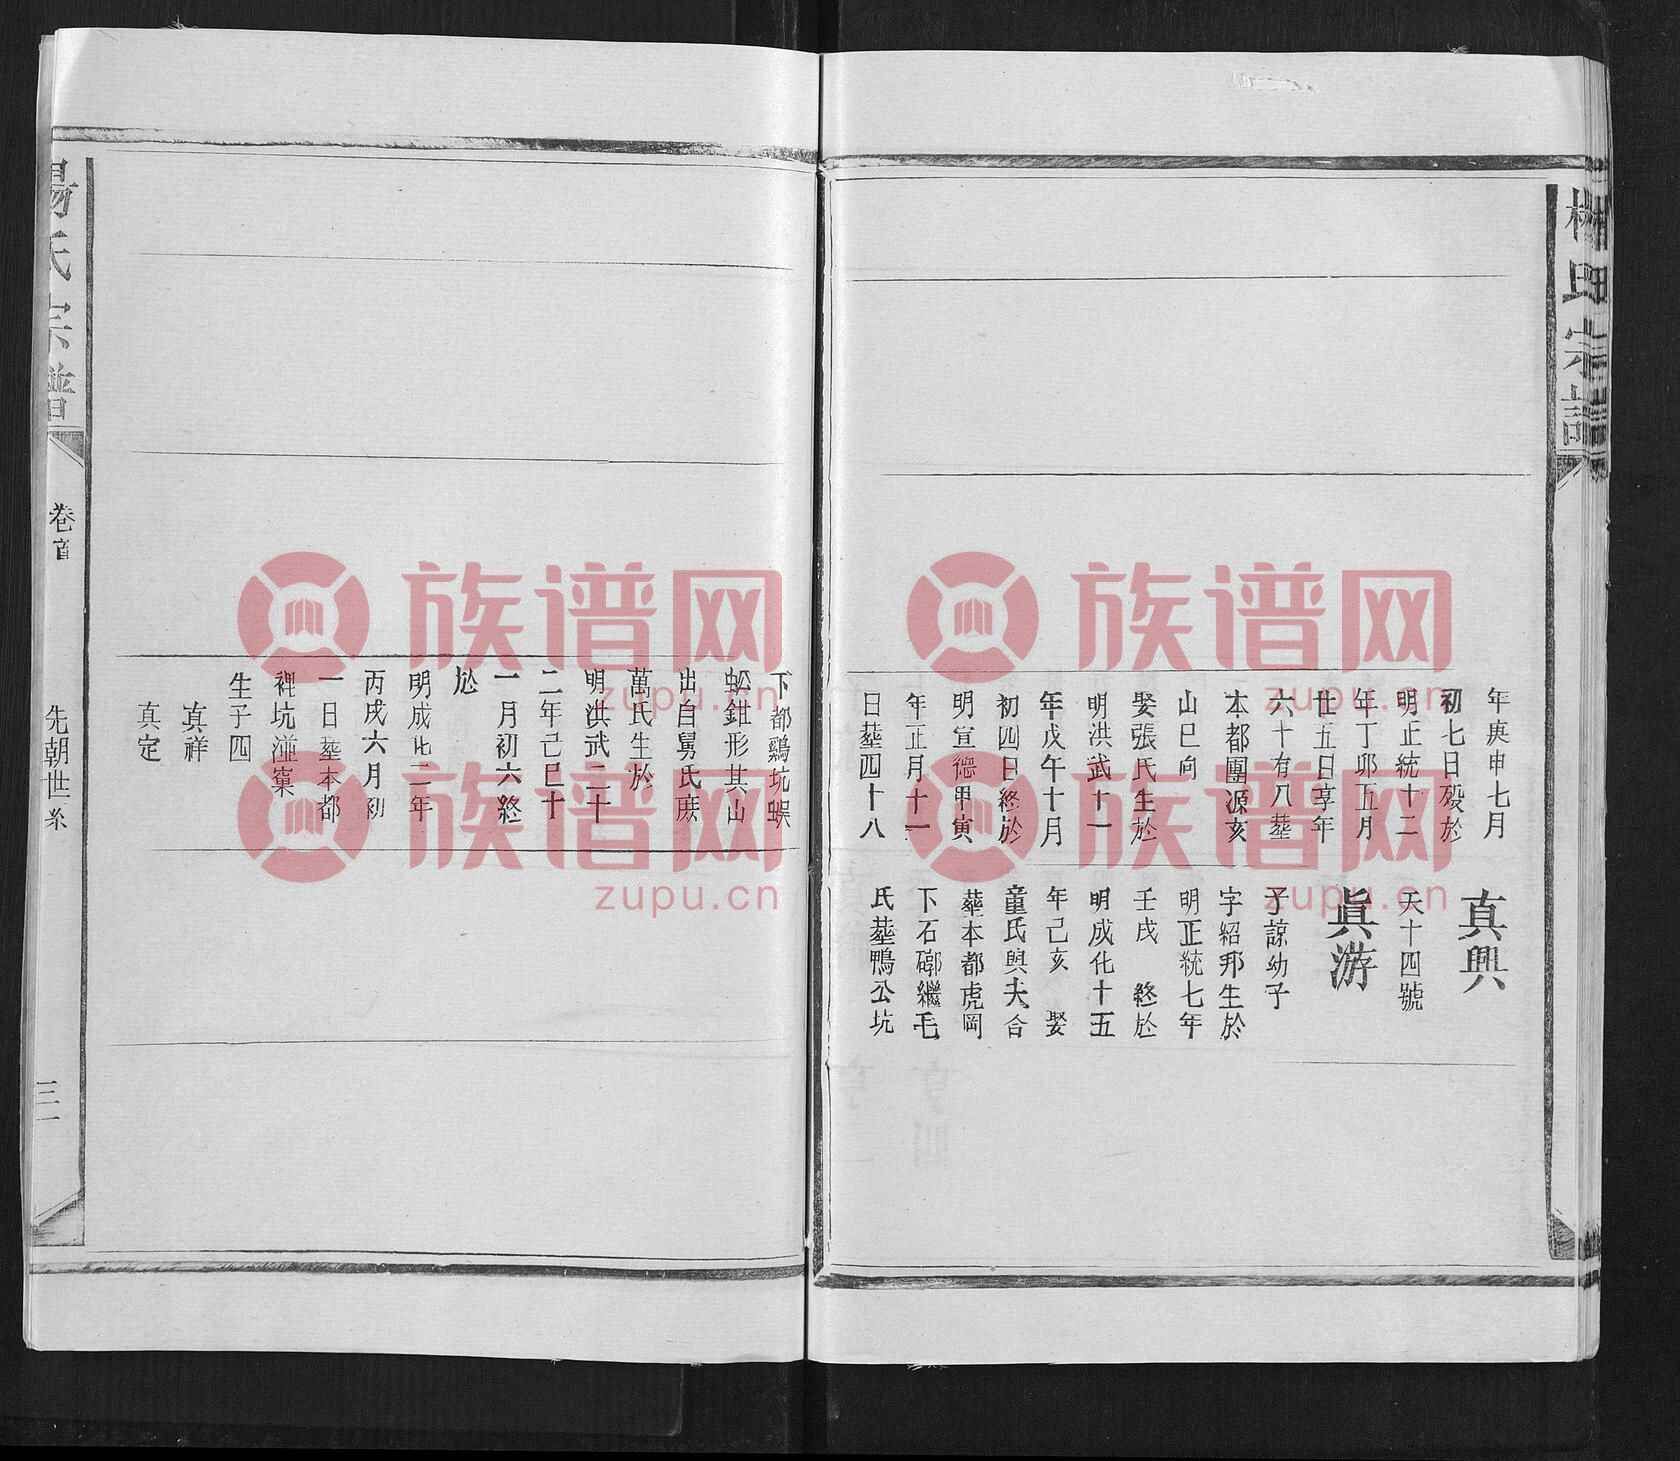 楊氏宗譜
年庚申七月
初七日歿於
明正統十二
年丁卯五月
廿五日享年
六十有八塟
本都團源亥
山巳向
娶張氏生於
明洪武十一
年戊午十月
初四日終於
明宣德甲寅
年正月十一
日塟四十八
真興
天十四號
眞游
子諒幼子
字紹邦生於
明正統七年
壬戌 終於
明成化十五
年己亥 娶
童氏與夫合
塟本都虎岡
下石鄩繼毛
氏塟鴨公坑
下都鷄坑蜈
蚣鉗形其山
出自舅氏庻
萬氏生於
明洪武二十
二年己巳十
一月初六終
於
明成化二年
丙戌六月初
一日塟本都
裡坑湴窠
生子四
真祥
真定
楊氏宗譜
卷首
先朝世系
三一
族谱网
zupu.cn
族谱网
zupu.cn
族谱网
zupu.cn
族谱网
zupu.cn